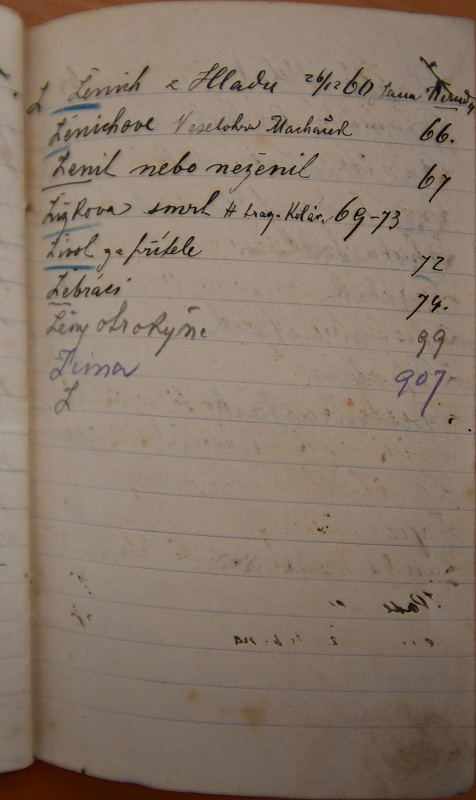 Ž Ženich z Hladu 26/12 60 Jana Nerudy
Ženichove Veselohra Machaček 66.
Ženil nebo neženil 67
Žižkova smrt H trag. Kolár. 69-73
Život za přítele 72
Žebráci 74.
Ženy otrokyně 99
Zima 907
Ž